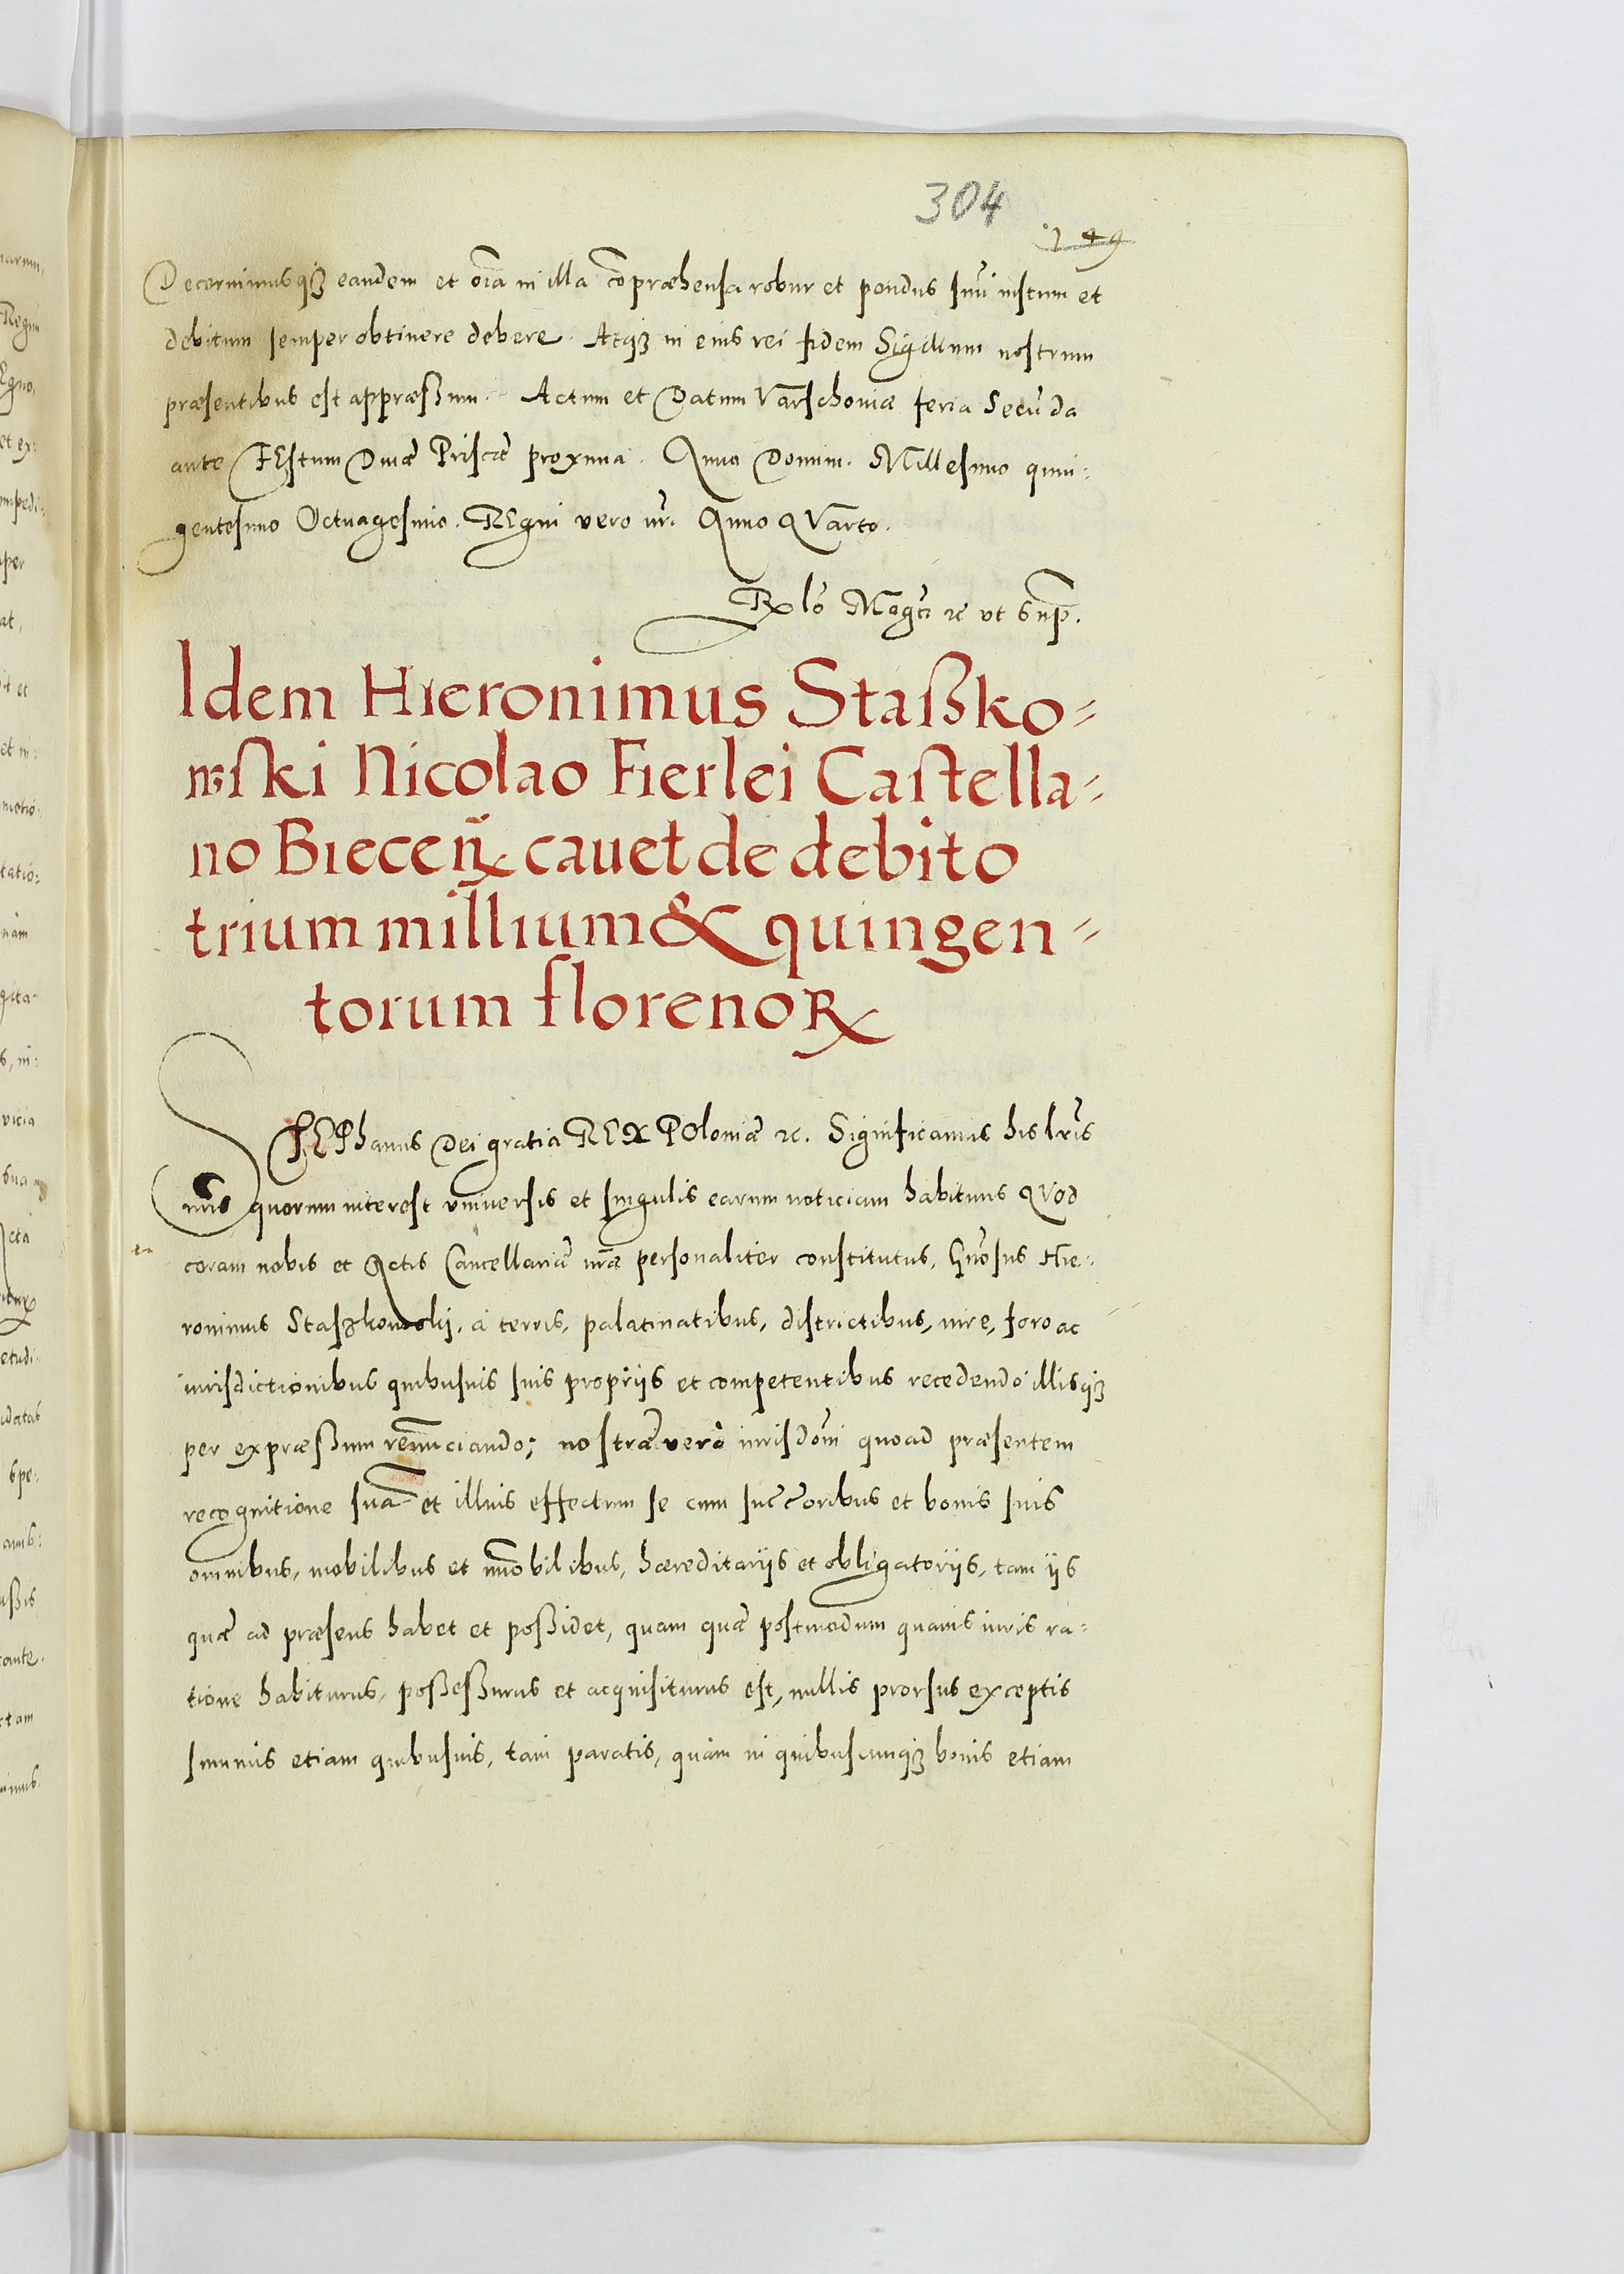 304
149
Decernimusq₃ eandem et oĩa in illa cõpræhensa robur et pondus suũ iustum et
debitum semper obtinere debere. Atq₃ in eius rei fidem Sigillum nostrum
præsentibus est appræßum. Actum et Datum Varschoviæ feria Secũda
ante FEstum Diuæ Priscæ proxima. Anno Domini. Millesimo quin:
gentesimo Octuagesimo. REgni vero nr̃i Anno QVarto.
Rlõ Mag̃ci ꝛc vt sup̃.
Idem Hieronimus Staßko=
wski Nicolao Fierlei Castella=
no Biecen̄ cauet de debito
trium millium & quingen=
torum florenoꝝ
STEPhanus Dei gratia REX POloniæ ꝛc. Significamus his lr̃is
nr̃is quorum interest vniuersis et singulis earum noticiam habituris QVod
coram nobis et Actis Cancellariæ nr̃æ personaliter constitutus, Gñosus Hie:
ronimus Staszkowskij, à terris, palatinatibus, districtibus, iure, foro ac
iurisdictionibus quibusuis suis proprijs et competentibus recedendo illisq₃
per expræßum renũciando; nostræ verò iurisdõni quoad præsentem
recognitione suã et illius effectum se cum succ̃oribus et bonis suis
omnibus, mobilibus et im̃obilibus, hæreditarijs et obligatorijs, tam ijs
quæ ad præsens habet et poßidet, quam quæ postmodum quauis iuris ra=
tione habiturus, poßeßurus et acquisiturus est, nullis prorsus exceptis
summis etiam quibusuis, tam paratis, quàm in quibuscunq₃ bonis etiam